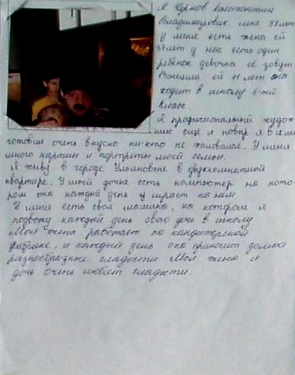 Я Чернов Константин
Владимирович мне 38лет
у меня есть жена ей
37лет у нас есть один
ребёнок девочка её зовут
ей 11 лет она
ходит в школу 5-ый
класс
Я профессиональный худож
ник ещё я повар я и мы
готовим очень вкусно ни кто не жаловался. У меня
много картин и портреты моей семьи.
Я живу в городе Ульяновске в двухкомнатной
квартире. У моей дочке есть компьютер на кото
ром она каждый день играет на нём
У меня есть своя машина, на котором я
подвожу каждый день свою дочь в школу
Моя жена работает по кондитерской
фабрике, и каждый день она приносит домой
разнообразные сладости Моя жена и
дочь очень любят сладости.